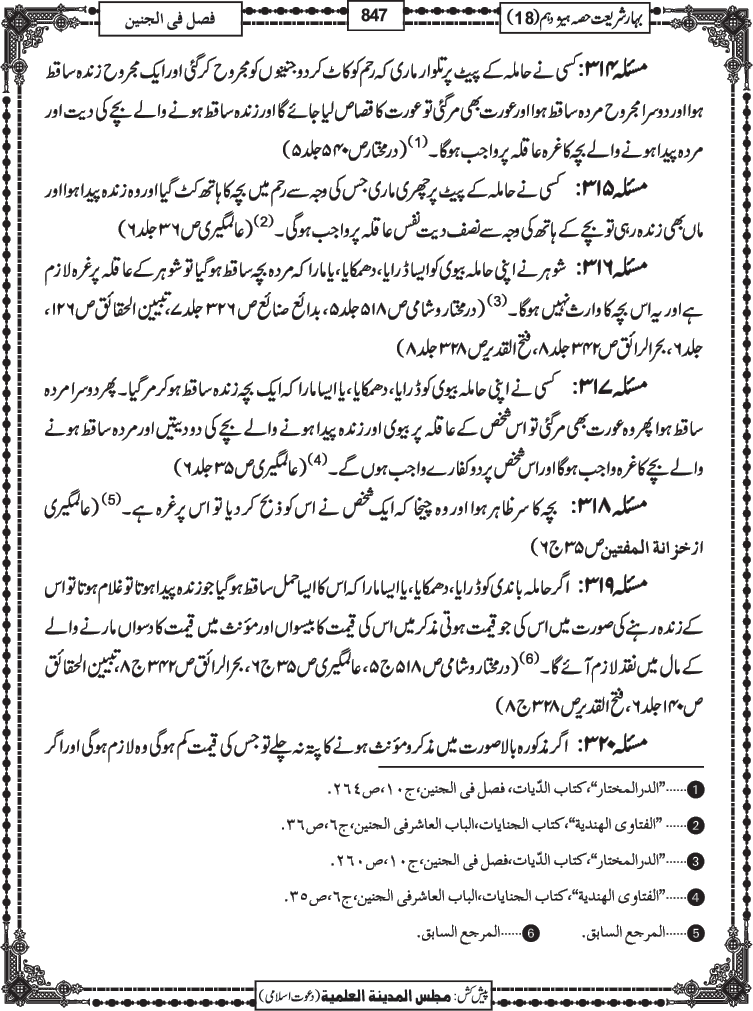 بہار شریعت حصہ ہیژدہم (18)
847
فصل فی الجنین
مسئلہ ۳۱۴: کسی نے حاملہ کے پیٹ پر تلوار ماری کہ رحم کو کاٹ کر دو جنینوں کو مجروح کر گئی اور ایک مجروح زندہ ساقط
ہوا اور دوسرا مجروح مردہ ساقط ہوا اور عورت بھی مر گئی تو عورت کا قصاص لیا جائے گا اور زندہ ساقط ہونے والے بچے کی دیت اور
مردہ پیدا ہونے والے بچہ کا غرہ عاقلہ پر واجب ہوگا۔(1) (درمختار ص ۵۴۰ جلد ۵)
مسئلہ ۳۱۵: کسی نے حاملہ کے پیٹ پر چھری ماری جس کی وجہ سے رحم میں بچہ کا ہاتھ کٹ گیا اور وہ زندہ پیدا ہوا اور
ماں بھی زندہ رہی تو بچے کے ہاتھ کی وجہ سے نصف دیت نفس عاقلہ پر واجب ہوگی۔(2) (عالمگیری ص ۳۶ جلد ۶)
مسئلہ ۳۱۶: شوہر نے اپنی حاملہ بیوی کو ایسا ڈرایا، دھمکایا، یا مارا کہ مردہ بچہ ساقط ہوگیا تو شوہر کے عاقلہ پر غرہ لازم
ہے اور یہ اس بچہ کا وارث نہیں ہوگا۔(3) (درمختار وشامی ص ۵۱۸ جلد ۵، بدائع صنائع ص ۳۲۶ جلد ۷، تبیین الحقائق ص ۱۲۶،
جلد ۶، بحر الرائق ص ۳۴۲ جلد ۸، فتح القدیر ص ۳۲۸ جلد ۸)
مسئلہ ۳۱۷: کسی نے اپنی حاملہ بیوی کو ڈرایا، دھمکایا، یا ایسا مارا کہ ایک بچہ زندہ ساقط ہو کر مر گیا۔ پھر دوسرا مردہ
ساقط ہوا پھر وہ عورت بھی مر گئی تو اس شخص کے عاقلہ پر بیوی اور زندہ پیدا ہونے والے بچے کی دو دیتیں اور مردہ ساقط ہونے
والے بچے کا غرہ واجب ہوگا اور اس شخص پر دو کفارے واجب ہوں گے۔(4) (عالمگیری ص ۳۵ جلد ۶)
مسئلہ ۳۱۸: بچہ کا سر ظاہر ہوا اور وہ چیخا کہ ایک شخص نے اس کو ذبح کر دیا تو اس پر غرہ ہے۔(5) (عالمگیری
از خزانۃ المفتین ص ۳۵ ج ۶)
مسئلہ ۳۱۹: اگر حاملہ باندی کو ڈرایا، دھمکایا، یا ایسا مارا کہ اس کا ایسا حمل ساقط ہوگیا جو زندہ پیدا ہوتا تو غلام ہوتا تو اس
کے زندہ رہنے کی صورت میں اس کی جو قیمت ہوتی مذکر میں اس کی قیمت کا بیسواں اور مؤنث میں قیمت کا دسواں مارنے والے
کے مال میں نقد لازم آئے گا۔(6) (درمختار وشامی ص ۵۱۸ ج ۵، عالمگیری ص ۳۵ ج ۶، بحر الرائق ص ۳۴۲ ج ۸، تبیین الحقائق
ص ۱۴۰ جلد ۶، فتح القدیر ص ۳۲۸ ج ۸)
مسئلہ ۳۲۰: اگر مذکورہ بالا صورت میں مذکر و مؤنث ہونے کا پتہ نہ چلے تو جس کی قیمت کم ہوگی وہ لازم ہوگی اور اگر
1......"الدرالمختار"، کتاب الدّیات، فصل فی الجنین، ج۱۰، ص۲۶۴.
2......"الفتاوی الھندیة"، کتاب الجنایات، الباب العاشر فی الجنین، ج۶، ص۳۶.
3......"الدرالمختار"، کتاب الدّیات، فصل فی الجنین، ج۱۰، ص۲۶۰.
4......"الفتاوی الھندیة"، کتاب الجنایات، الباب العاشر فی الجنین، ج۶، ص۳۵.
5......المرجع السابق. 6......المرجع السابق.
پیش کش: مجلس المدینة العلمیة (دعوت اسلامی)